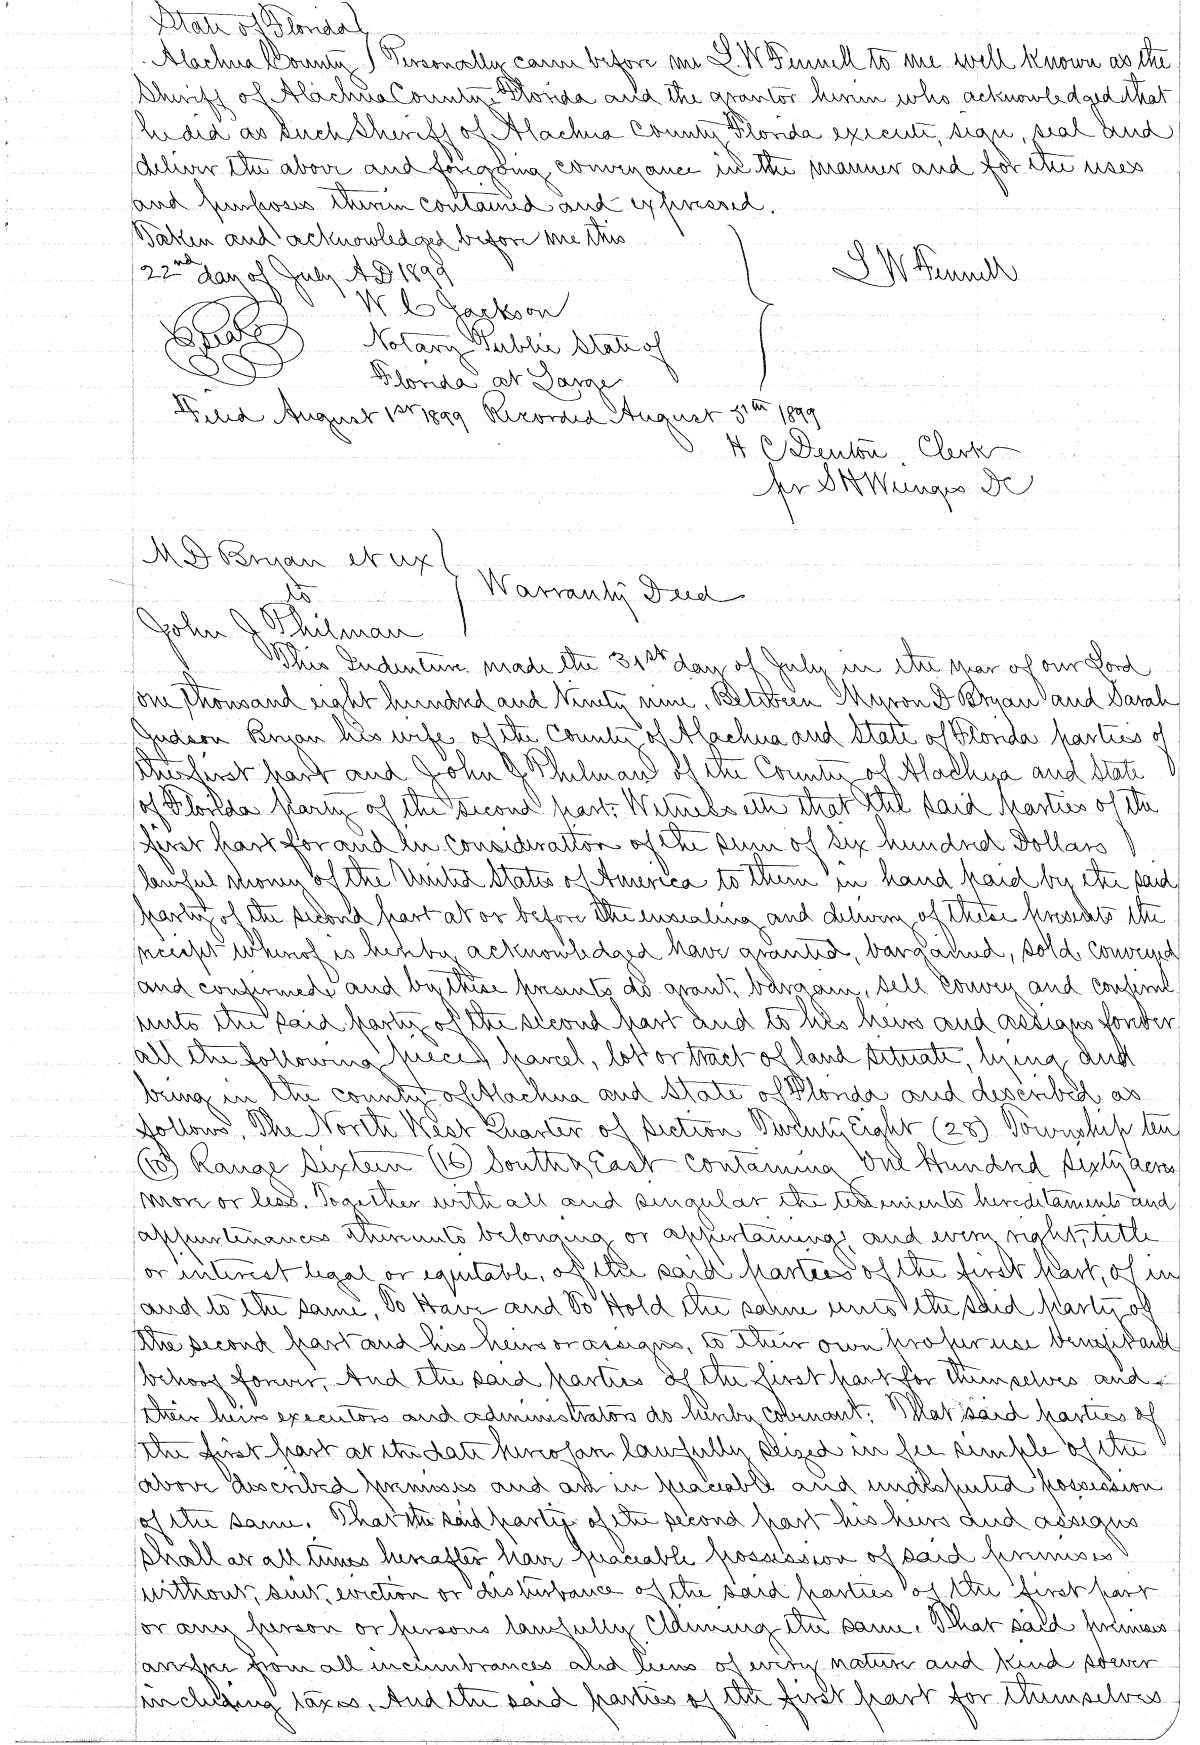 State of Florida }
Alachua County } Personally came before me L. W Fennell to me well known as the
Sheriff of Alachua County, Florida and the grantor herein who acknowledged that
he did as such Sheriff of Alachua County Florida execute, sign, seal and
deliver the above and foregoing conveyance in the manner and for the uses
and purposes therein contained and expressed.
Taken and acknowledged before me this
22nd day of July A.D 1899
L W Fennell
W C Jackson
Seal
Notary Public State of
Florida at Large
Filed August 1st 1899 Recorded August 5th 1899
H C Denton, Clerk
pr S H Wienges DC
M D Bryan et ux }
to
Warranty Deed
John J Philman
This Indenture made the 31st day of July in the year of our Lord
one thousand eight hundred and Ninety nine. Between Myron D Bryan and Sarah
Judson Bryan his wife of the County of Alachua and State of Florida parties of
the first part and John J. Philman of the County of Alachua and State
of Florida Party of the second part: Witnesseth that the said parties of the
first part for and in consideration of the sum of Six hundred Dollars
lawful money of the United States of America to them in hand paid by the said
party of the second part at or before the ensealing and delivery of these presents the
receipt whereof is hereby acknowledged have granted, bargained, sold, conveyed
and confirmed, and by these presents do grant, bargain, sell convey and confirm
unto the said party of the second part and to his heirs and assigns forever
all the following piece, parcel, lot or tract of land situate, lying and
being in the county of Alachua and State of Florida and described as
follows, The North West Quarter of Section Twenty Eight (28) Township ten
(10) Range Sixteen (16) South & East containing One Hundred Sixty acres
more or less. Together with all and singular the tenements hereditaments and
appurtenances thereunto belonging or appertaining, and every right, title
or interest legal or equitable, of the said parties of the first part, of in
and to the same, To Have and To Hold the same unto the said party of
the second part and his heirs or assigns, to their own proper use benefit and
behoof forever, And the said parties of the first part for themselves and
their heirs executors and administrators do hereby covenant: That said parties of
the first part at the date hereof are lawfully seized in fee simple of the
above described premises and are in peaceable and undisputed possession
of the same. That the said party of the second part his heirs and assigns
shall at all times hereafter have peaceable possession of said premises
without, suit, eviction or disturbance of the said parties of the first part
or any person or persons lawfully claiming the same. That said premises
are free from all incumbrances and liens of every nature and kind soever
including taxes. And the said parties of the first part for themselves